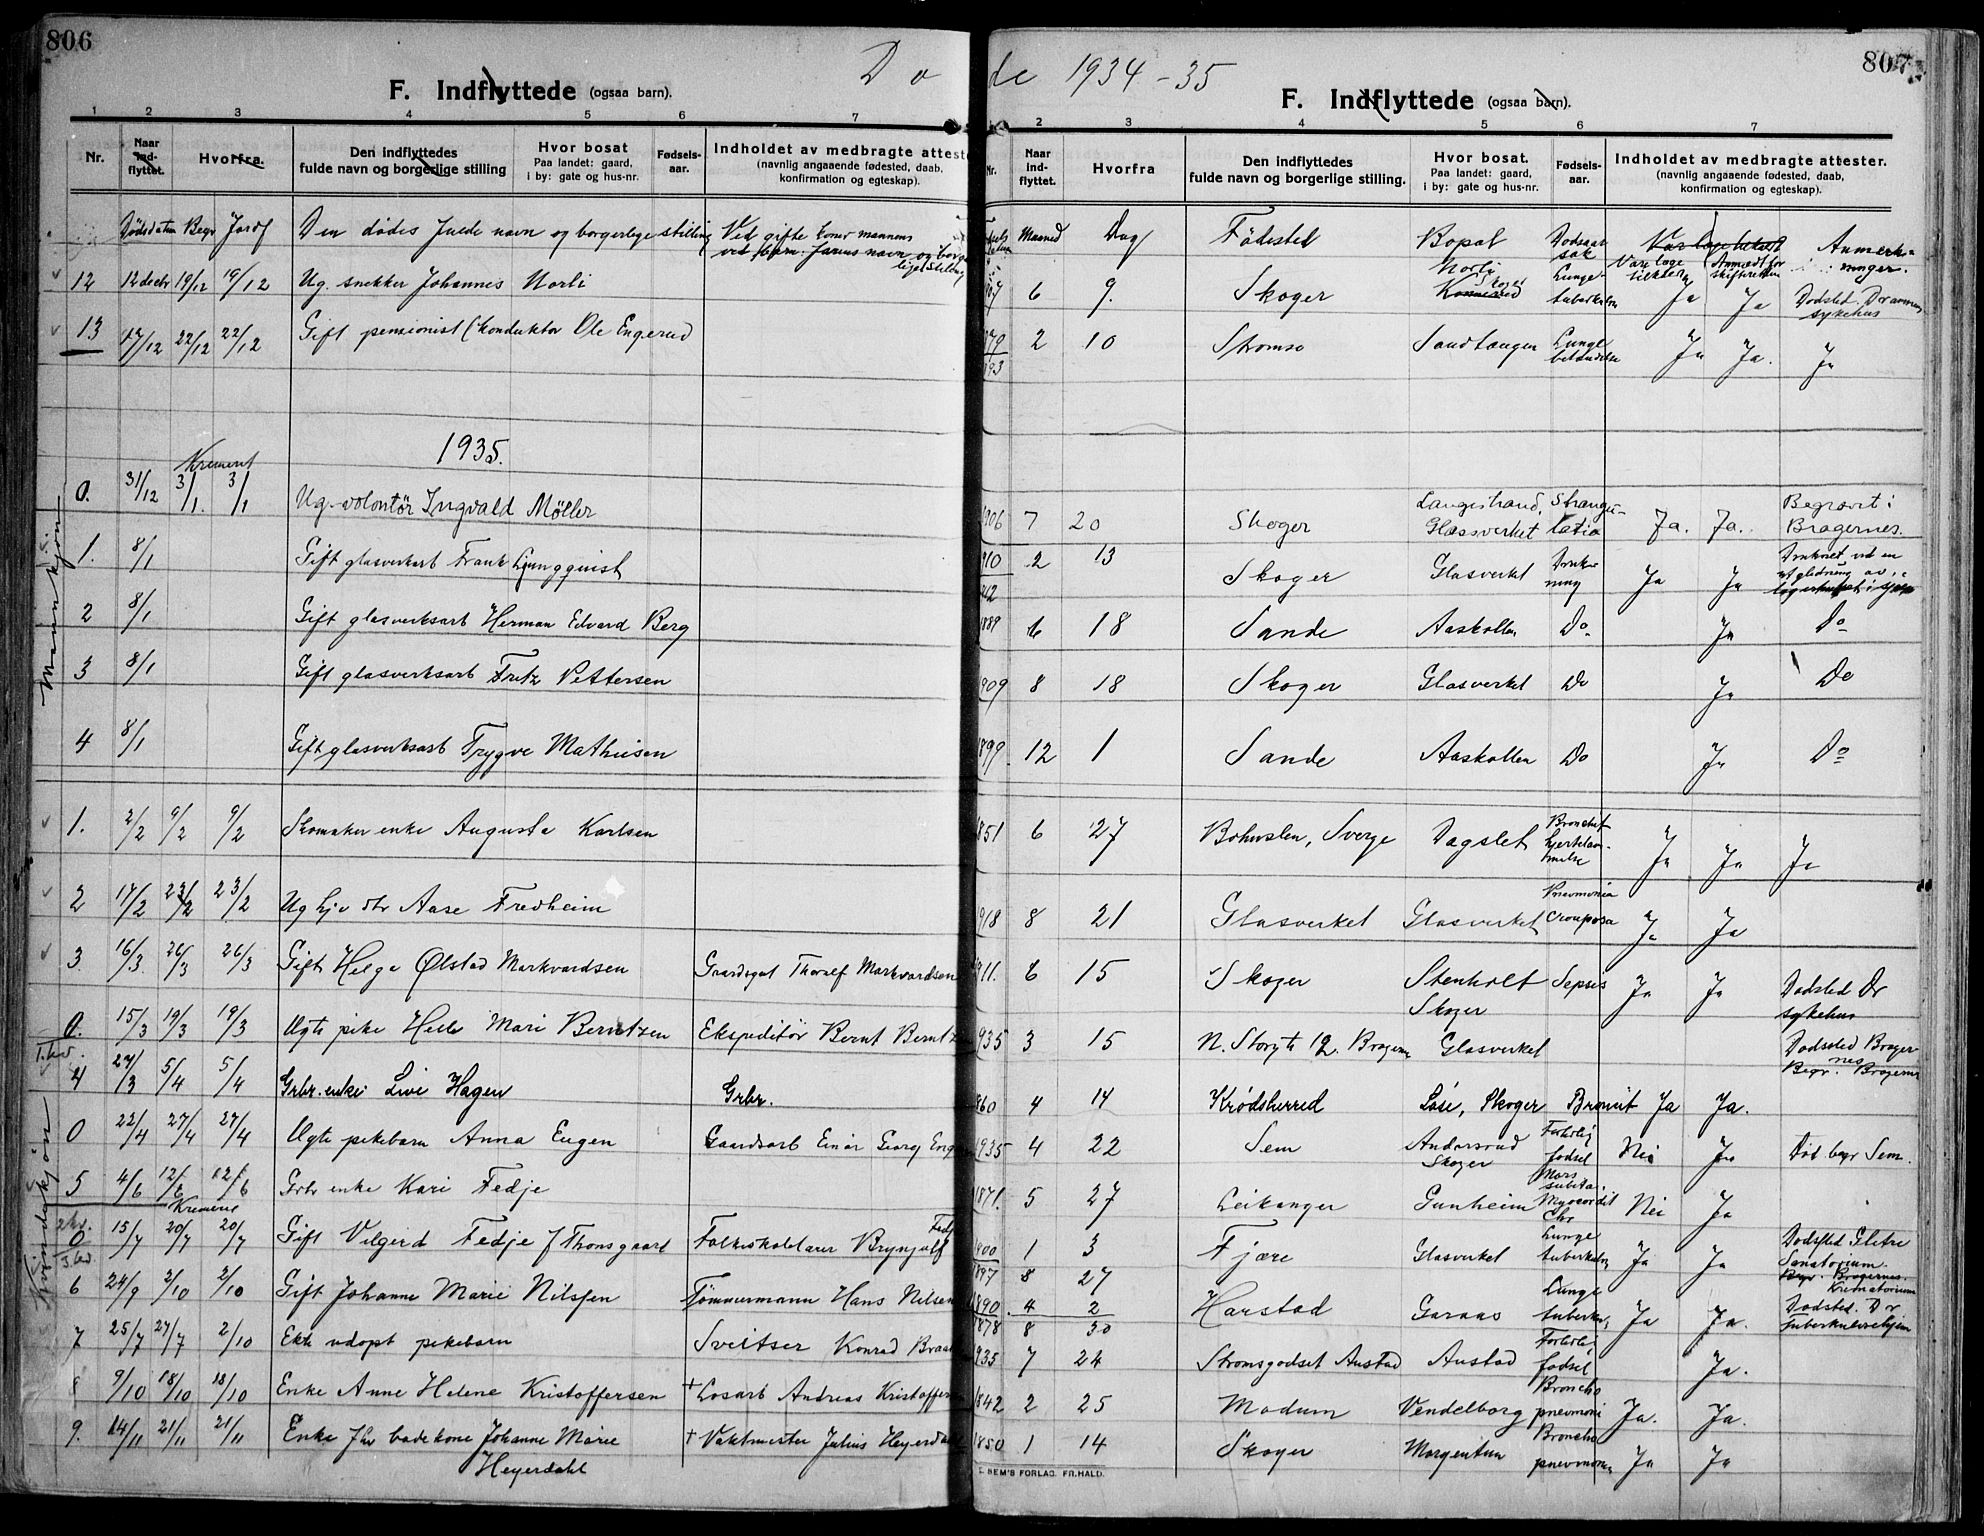 806
Dø
F. Indflyttede (ogsaa barn).
1 2 3 4 5 6 7
Nr. Naar ind-flyttet. Hvorfra. Den indflyttedes fulde navn og borgerlige stilling Hvor bosat Paa landet: gaard, i by: gate og hus-nr. Fødselsaar. Indholdet av medbragte attester (navnlig angaaende fødested, daab, konfirmation og egteskap).
Dødsdatum Begr Jordf Den dødes fulde navn og borgerlige stilling Ved gifte koner mannens
ved barn: farens navn og borgerliget stilling
12 12 decbr 19/12 19/12 Ug. snekker Johannes Norli
13 17/12 22/12 22/12 Gift pensionist (konduktør Ole Engerud
1935.
Kremert
0. 31/12 3/1. 3/1 Ug. volontör Ingvald Möller
Mannkjøn
1. 8/1 Gift glasverksarb Frank Ljungquist
2 8/1 Gift glasverksarb Herman Edvard Berg
3 8/1 Gift glasverksarb Fritz Pettersen
4 8/1 Gift glasverksarb Trygve Mathisen
1. 2/2 9/2 9/2 Skomaker enke Augusta Karlsen
2 17/2 23/2 23/2 Ug hj v dtr Aase Fredheim
3. 16/3. 26/3 26/3 Gift Helga Ølstad Markvardsen Gaardsgut Thoralf Markvardsen
0. 15/3 19/3 19/3 Ugte pike Mari Berntzen Ekspeditör Bernt Berntz
1. kv.
4 27/3 5/4 5/4 Grbr. enke Live Hagen Grbr.
Kvindekjøn
0 22/4 27/4 27/4 Ugte pikebarn Anna Eugen Gaardsarb Einar Georg
5 4/6 12/6 12/6 Grbr enke Kari Fedje
Kremert
2 kv.
0 15/7 20/7 20/7 Gift Valgerd Fedje f Thonsgaard Folkeskolelærer Brynjulf Fedje
3. kv.
6 24/9 2/10 2/10 Gift Johanne Marie Nilssen Tømmermann Hans Nilsen
7 25/7 27/7 2/10 Ekte udøpt pikebarn Sveitser Konrad
8 9/10 18/10 18/10 Enke Anne Helene Kristoffersen † Losarb Andreas Kristoffersen
9. 14/11 21/11 21/11 Enke fhv badekone Johanne Marie † Vaktmester Julius Heyerdahl
Heyerdahl
807
de 1934-35
F. Indflyttede (ogsaa barn).
2 3 4 5 6 7
Nr. Naar ind-flyttet. Hvorfra Den indflyttedes fulde navn og borgerlige stilling. Hvor bosat. Paa landet: gaard, i by: gate og hus-nr. Fødselsaar. Indholdet av medbragte attester. (navnlig angaaende fødested, daab, konfirmation og egteskap).
Maaned Dag Födested Bopal Dødsaarsak Var læge tilkldt Anmeldt for skifteretten Anmerkninger.
6 9. Skoger Norli Skoger Lungetuberkulose Ja Ja Dødsted. Drammen sykehus
2 10 Strømsø Sandtangen Lungebetændelse Ja Ja. Ja
1906 7 20 Skoger Langestrand, Glassverket Strangulatio Ja. Ja. Begravet i Bragernes.
1910 2 13 Skoger Glasverket Drukning Ja Ja Druknet ved en utglidning av
1889 6 18 Sande Aaskollen Do. Ja Do
1909 8 18 Skoger Glasverket Do Ja Do
1899 12 1 Sande Aaskollen Do Ja Do
1851 6 27 Bohuslen, Sverge Dagslet Bronchit hjertelammelse Ja Ja Ja
1918 8 21 Glasverket Glasverket Pnevmonia Crouposa Ja Ja
1911. 6 15 Skoger Stenholt Skoger Sepsis Ja Ja Dødsted Dr sykehus
1935 3 15 N. Storgt. 12. Bragernes Glasverket Dødssted Bragernes Begr. Bragernes
1860 4 14 Krødsherred Løse, Skoger Bronsit Ja Ja.
1935 4 22 Sem Andorsrud Skoger Forholig fødsel Nei Ja Død begr Sem.
1871. 5 27 Leikanger Gunheim Mors subita. Myocardit Chr Nei Ja
1900 1 3 Fjære Glasverket Lungetuberkulose Ja Ja Dødsted Gletre Sanatorium. Begr. Bragernes. Krematorium
1897 8 27
1890 4 2 Harstad Garaas Lungetuberku. Ja Ja. Dødsted. Dr Tuberkulosehjem
1878 8 30
1935 7 24 Strømsgodset Austad Austad Forholig fødsel Ja.
1842 2 25 Modum Vendelborg Broncho pnevmoni Ja. Ja.
1850 1 14 Skoger Morgentun Broncho pnevmoni Ja Ja
E. SEM'S FORLAG. FR.HALD.